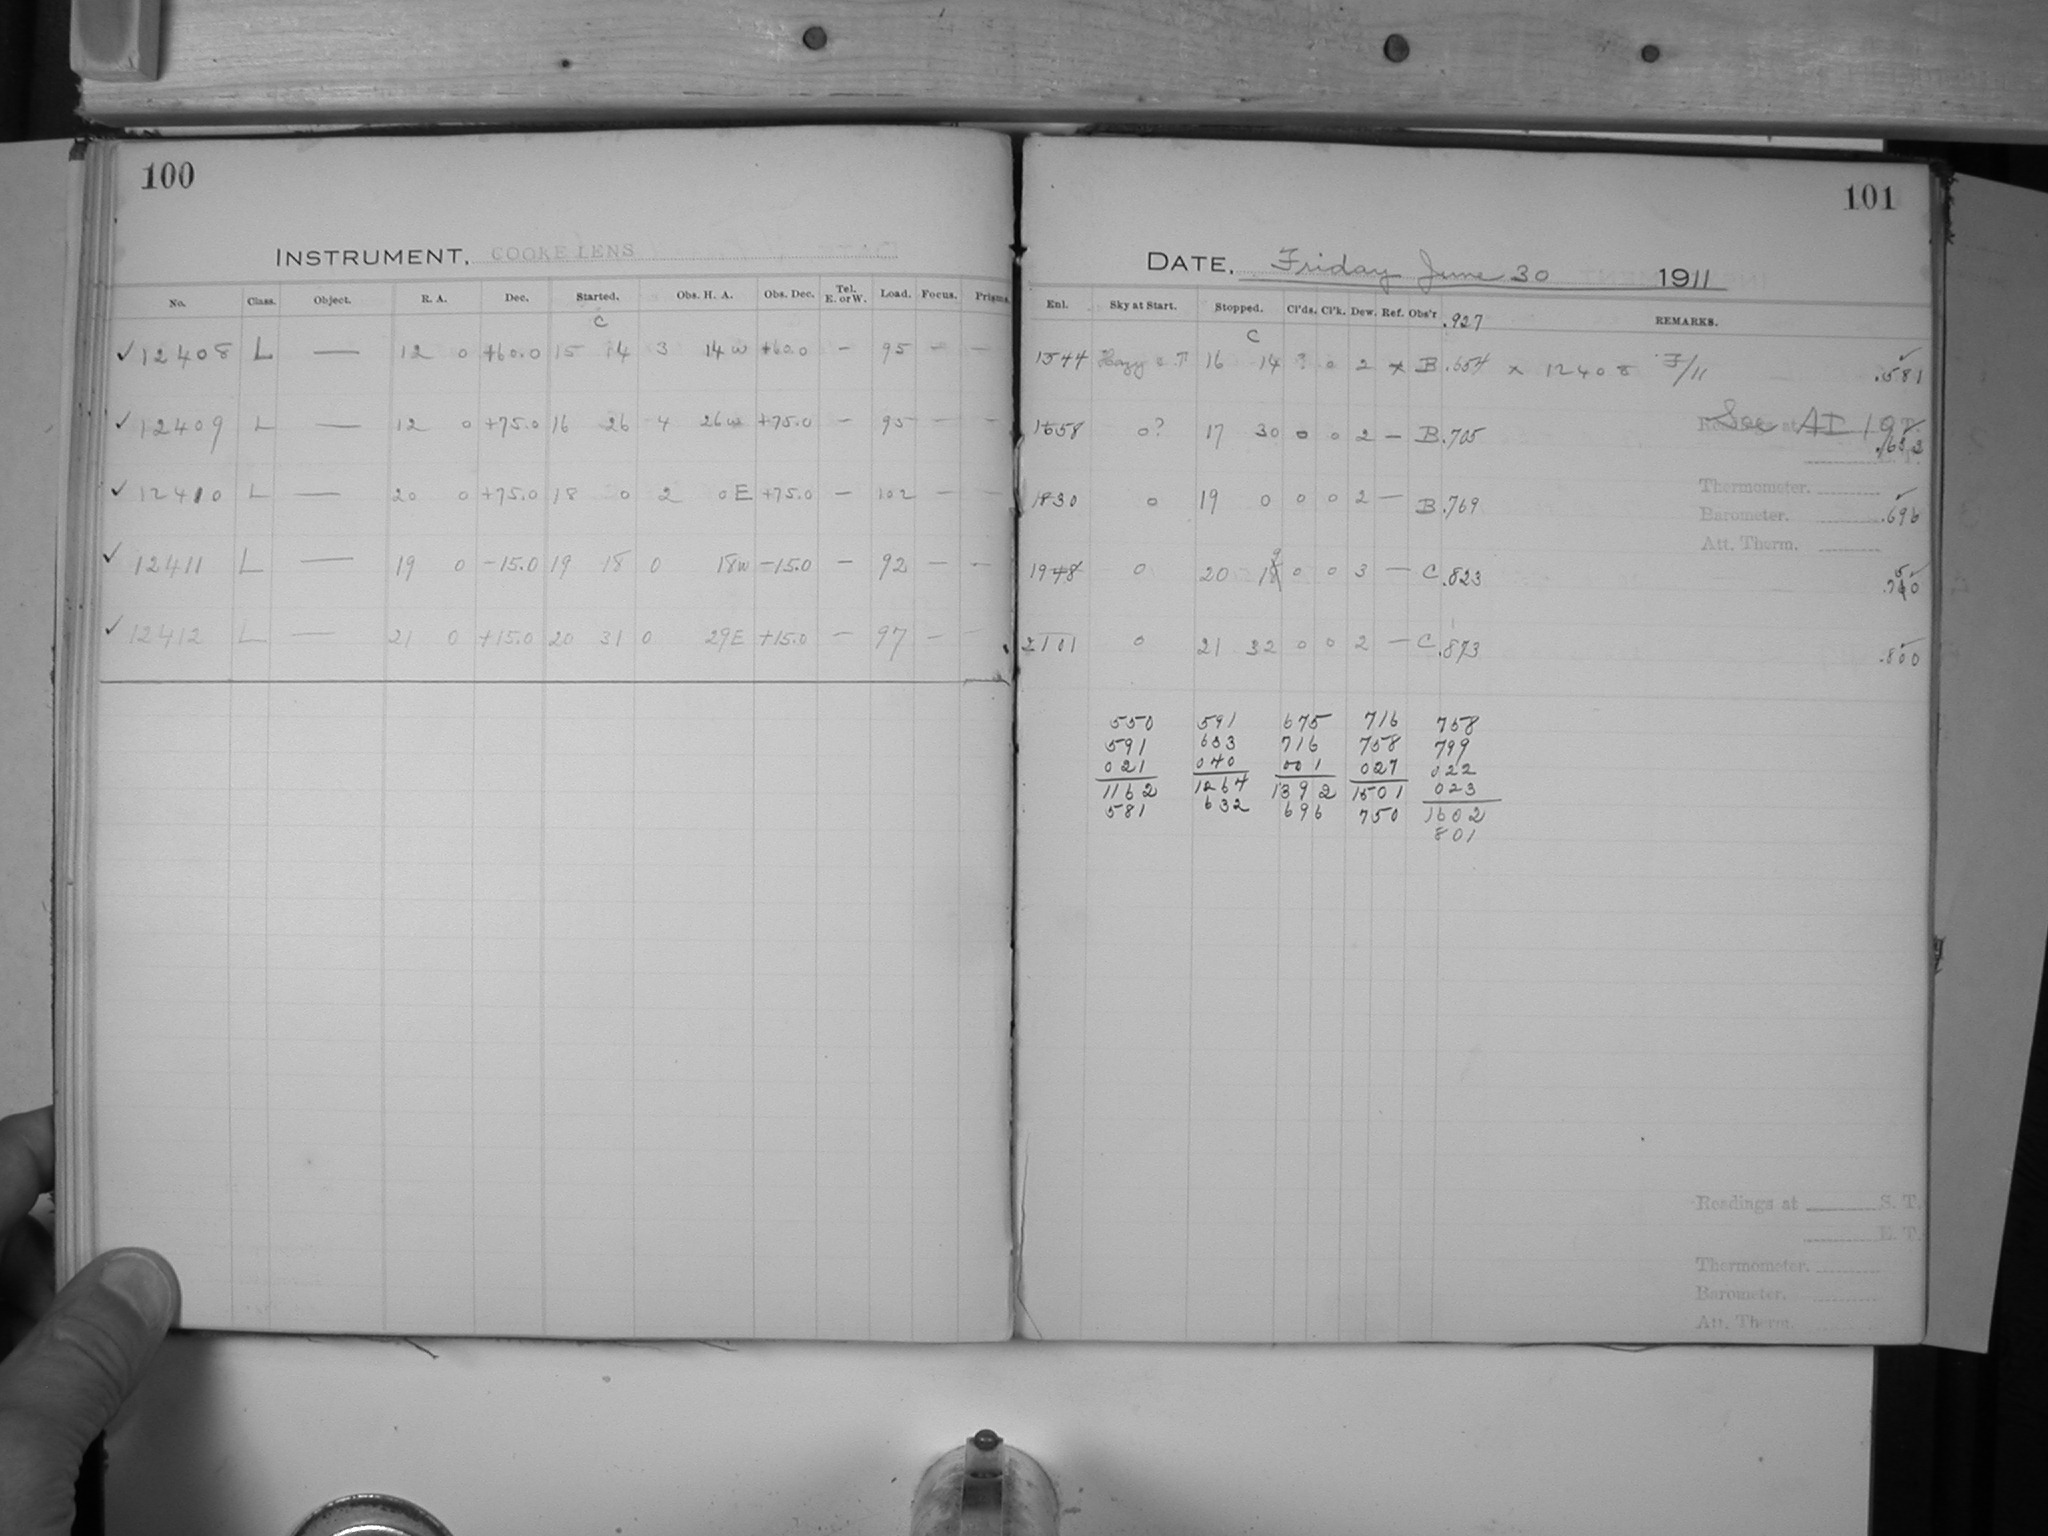 100
INSTRUMENT, COOKE LENS
No. Class. Object. R. A. Dec. Started. Obs. H. A. Obs. Dec. Tel. E. or W. Load. Focus. Prisms.
C
✓ 12408 L — 12 0 +60.0 15 14 3 14 W +60.0 — 95 — —
✓ 12409 L — 12 0 +75.0 16 26 4 26 W +75.0 — 95 — —
✓ 12410 L — 20 0 +75.0 18 0 2 0 E +75.0 — 102 — —
✓ 12411 L — 19 0 -15.0 19 18 0 18 W -15.0 — 92 — —
✓ 12412 L — 21 0 +15.0 20 31 0 29 E +15.0 — 97 — —
101
DATE, Friday June 30 1911
Enl. Sky at Start. Stopped. Cl'ds. Cl'k. Dew. Ref. Obs'r .927 REMARKS.
C
1544 Hazy 16 14 ? 0 2 × B .654 × 12408 F/11 .581 ✓
1658 0? 17 30 0 0 2 — B .705 See AD 10
.633
1830 0 19 0 0 0 2 — B .769 .696 ✓
1948 0 20 18 9 0 0 3 — C .823 .760 5 ✓
2101 0 21 32 0 0 2 — C .873 .800
550 591 675 716 758
591 633 716 758 799
021 040 001 027 022
1162 1264 1392 1501 023
581 632 696 750 1602
801
Readings at S. T.
Thermometer.
Barometer.
Att. Therm.
Readings at S. T.
E. T.
Thermometer.
Barometer.
Att. Therm.